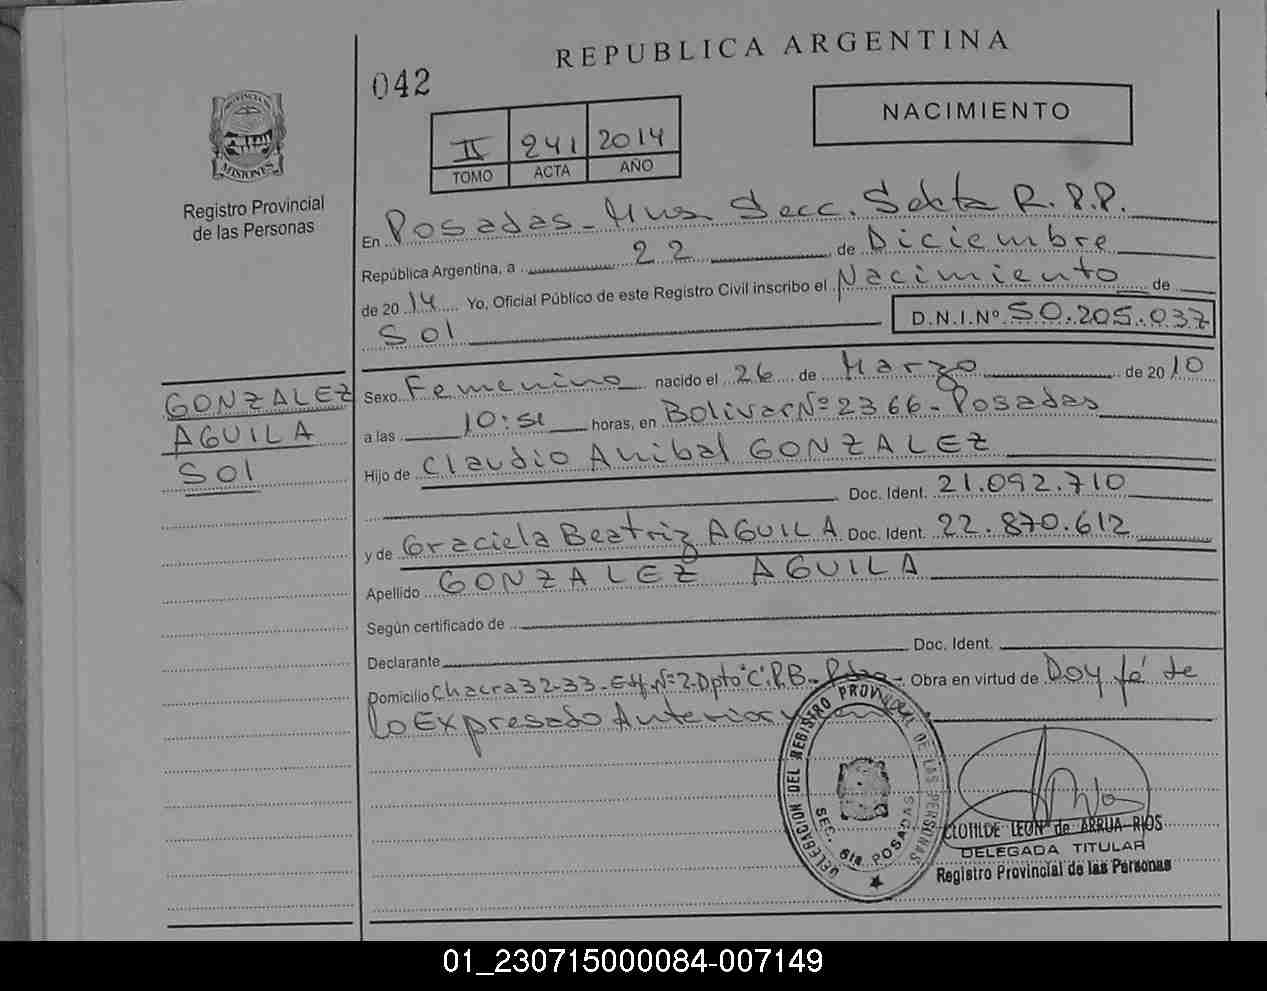 REPUBLICA ARGENTINA
042
NACIMIENTO
II 241 2014
TOMO ACTA AÑO
PROVINCIA DE
MISIONES
Registro Provincial
de las Personas
En Posadas - Mnes Secc. Sexta R.P.P.
República Argentina, a 22 de Diciembre
de 2014 Yo, Oficial Público de este Registro Civil inscribo el Nacimiento de
Sol D.N.I.Nº 50.205.037
GONZALEZ
AGUILA
Sol
Sexo Femenino nacido el 26 de Marzo de 2010
a las 10:51 horas, en Bolivar Nº 2366 - Posadas
Hijo de Claudio Anibal GONZALEZ
Doc. Ident. 21.092.710
y de Graciela Beatriz AGUILA Doc. Ident. 22.870.612
Apellido GONZALEZ AGUILA
Según certificado de
Declarante Doc. Ident.
Domicilio Chacra 32-33. Edf. Nº 2. Dpto "C". P.B. - Pdas - Obra en virtud de Doy fé de
lo Expresado Anteriormente
DELEGACION DEL REGISTRO PROVINCIAL DE LAS PERSONAS
SEC. 6ta POSADAS
CLOTILDE LEON de ARRUA RIOS
DELEGADA TITULAR
Registro Provincial de las Personas
01_230715000084-007149